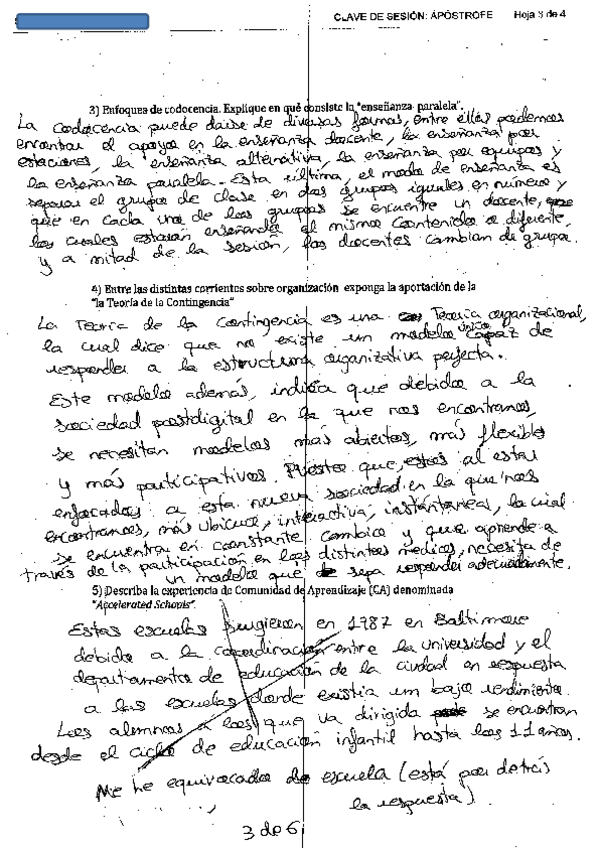 CLAVE DE SESIÓN: APÓSTROFE Hoja 3 de 4
3) Enfoques de codocencia. Explique en qué consiste la "enseñanza paralela".
La codocencia puede darse de diversas formas, entre ellas podemos
encontrar el apoyo en la enseñanza docente, la enseñanza por
estaciones, la enseñanza alternativa, la enseñanza por equipos y
la enseñanza paralela. Esta última, el modo de enseñanza es
separar el grupo de clase en dos grupos iguales en número y
que en cada uno de los grupos se encuentre un docente,
los cuales estarán enseñando el mismo contenido o diferente,
y a mitad de la sesión, los docentes cambian de grupo.
4) Entre las distintas corrientes sobre organización exponga la aportación de la
"la Teoría de la Contingencia"
La Teoría de la Contingencia es una Teoría organizacional,
la cual dice que no existe un modelo único capaz de
responder a la estructura organizativa perfecta.
Este modelo además, indica que debido a la
sociedad postdigital en la que nos encontramos,
se necesitan modelos más abiertos, más flexibles
y más participativos. Puesto que, al estar
enfocados a esta nueva sociedad en la que nos
encontramos, más ubicua, interactiva, instantánea, la cual
se encuentra en constante cambio y que aprende a
través de la participación en los distintos medios, necesita de
un modelo que sepa responder adecuadamente.
5) Describa la experiencia de Comunidad de Aprendizaje (CA) denominada
"Accelerated Schools".
Estas escuelas surgieron en 1987 en Baltimore
debido a la coordinación entre la universidad y el
departamento de educación de la ciudad en respuesta
a las escuelas donde existía un bajo rendimiento.
Los alumnos a los que va dirigida se encuentran
desde el ciclo de educación infantil hasta los 11 años.
Me he equivocado de escuela (está por detrás
la respuesta)
3 de 6